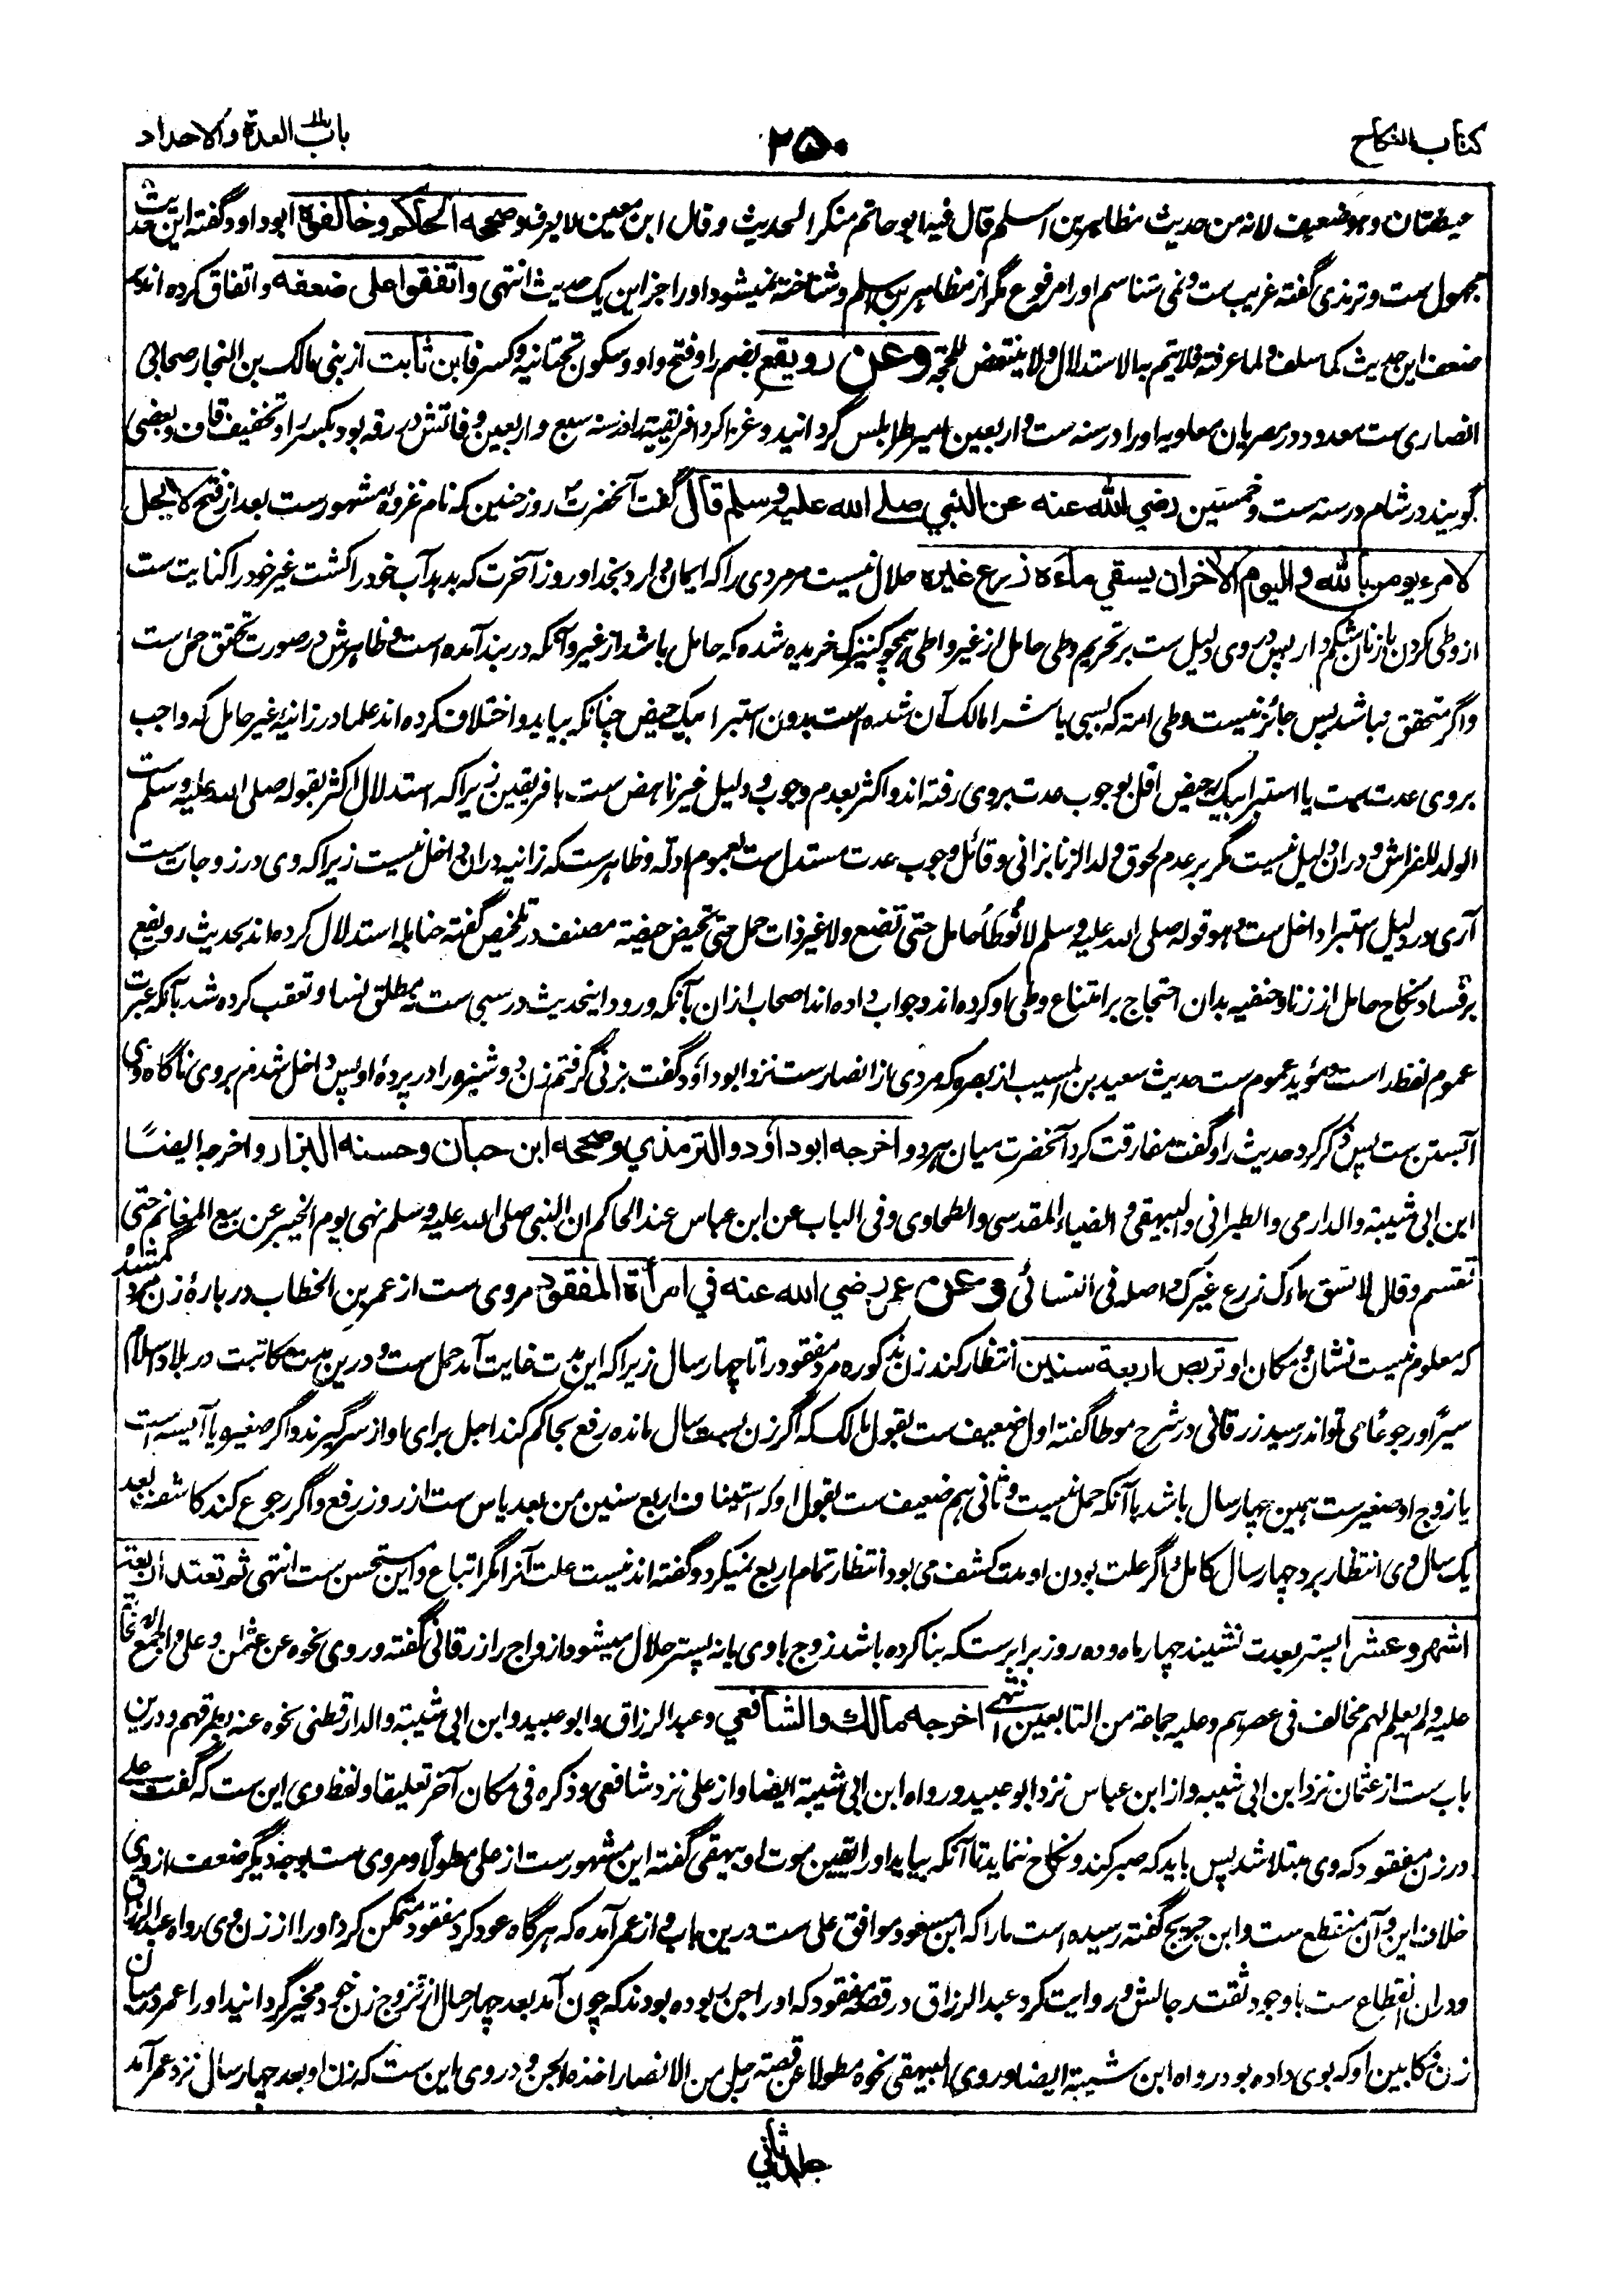 کتاب النکاح
۲۵۰
باب العدة والاحداد
حیضتان وهو ضعیف لانه من حدیث مظاهر بن اسلم قال فیه ابو حاتم منکر الحدیث وقال ابن معین لا یعرف وصححه الحاکم وخالفوه ابو داود گفته این حدیث
مجهول ست و ترمذی گفته غریب ست و نمی شناسم او را مرفوع مگر از مظاهر بن اسلم و شناخته نمیشود او را جز این یک حدیث انتهی واتفقوا علی ضعفه و اتفاق کرده اند بر
ضعف این حدیث کما سلف و لما عرفته فلا یتم به الاستدلال ولا ینتهض للحجة وعن رویفع بضم را و فتح واو و سکون تحتانیه و کسر فا بن ثابت از بنی مالک بن النجار صحابی
انصاری ست معدود در مصریان معاویه او را در سنه ست و اربعین امیر طرابلس گردانید و غزا کرد افریقیه را در سنه سبع و اربعین و فاتش در رقه بود بکسر را و تخفیف قاف و بعضی
گویند در شام در سنه ست و خمسین رضی الله عنه عن النبی صلی الله علیه وسلم قال گفت آنحضرت روز حنین که نام غزوهٔ مشهور ست بعد از فتح لا یحل
لامرء یومن بالله والیوم الاخر ان یسقی ماءه زرع غیره حلال نیست مر مردی را که ایمان دارد بخدا و روز آخرت که بدهد آب خود را کشت غیر خود را کنایت ست
از وطی کردن با زنان شکم دار پس در وی دلیل ست بر تحریم وطی حامل از غیر واطی همچو کنیزک خریده شده که حامل باشد از غیر و آنکه در بند آمده است و ظاهرش در صورت تحقق حمل ست
و اگر متحقق نباشد پس جائز نیست وطی امته که بسبی یا شرا مالک آن شده است بدون استبرا بیک حیض چنانکه بیاید و اختلاف کرده اند علما در زانیهٔ غیر حامل که واجب
بروی عدت ست یا استبرا بیک حیض اقل بوجوب عدت بروی رفته اند و اکثر بعدم وجوب و دلیل غیر ناهض ست با فریقین زیرا که استدلال اکثر بقوله صلی الله علیه وسلم ست
الولد للفراش و در آن دلیل نیست مگر بر عدم لحوق ولد الزنا بزانی و قائل وجوب عدت مستدل ست بعموم ادله و ظاهر ست که زانیه در آن داخل نیست زیرا که وی در زوجات ست
آری در دلیل استبرا داخل ست وهو قوله صلی الله علیه وسلم لا توطأ حامل حتی تضع ولا غیر ذات حمل حتی تحیض حیضة مصنف در تلخیص گفته حنابله استدلال کرده اند بحدیث رویفع
بر فساد نکاح حامل از زنا و حنفیه بدان احتجاج بر امتناع وطی او کرده اند و جواب داده اند اصحاب از آن بآنکه ورود اینحدیث در سبی ست نه مطلق نسا و تعقب کرده شد بآنکه عبرت
عموم لفظ راست و مؤید عموم ست حدیث سعید بن المسیب از بصره که مردی از انصار ست نزد ابو داؤد گفت بزنی گرفتم زن دوشیزه را در پردهٔ او پس داخل شدم بروی ناگاه وی
آبستن ست پس ذکر کرد حدیث را و گفت مفارقت کرد آنحضرت میان هر دو اخرجه ابو داؤد والترمذی وصححه ابن حبان وحسنه البزار واخرجه ایضاً
ابن ابی شیبة والدارمی والطبرانی والبیهقی و الضیاء المقدسی والطحاوی وفی الباب عن ابن عباس عند الحاکم ان النبی صلی الله علیه وسلم نهی یوم الخیبر عن بیع المغانم حتی
تقسم وقال لا تسق ماءک زرع غیرک واصله فی النسائی وعن عمر رضی الله عنه فی امرأة المفقود مروی ست از عمر بن الخطاب در بارهٔ زن مرد گمشده
که معلوم نیست نشان و مکان او تربص اربعة سنین انتظار کند زن مذکوره مرد مفقود را تا چهار سال زیرا که این مدت غایت آمد حمل ست و درین مدت مکاتبت در بلاد اسلام
سیراً و رجوعاً می تواند رسید زرقانی در شرح موطا گفته اول ضعیف ست بقول مالک که اگر زن بست سال مانده رفع بحاکم کند اجل برای او از سر گیرند و اگر صغیره یا آیسه است
یا زوج او صغیر ست همین چهار سال باشد با آنکه حمل نیست و ثانی هم ضعیف ست بقول او که استیناف اربع سنین من بعد یاس ست از روز رفع و اگر رجوع کند کاشف بعد
یک سال وی انتظار برد چهار سال کامل و اگر علت بودن او مدت کشف می بود انتظار تمام اربع نمیکرد و گفته اند نیست علت آنرا مگر اتباع و این مستحسن ست انتهی ثم تعتد اربعة
اشهر وعشرا پستر بعدت نشیند چهار ماه و ده روز برابر ست که بنا کرده باشد زوج با وی یا نه پستر حلال میشود ازواج را زرقانی گفته وروی نحوه عن عثمان وعلی و اجمع الصحابة
علیه ولم یعلم لهم مخالف فی عصرهم وعلیه جماعة من التابعین انتهی اخرجه مالک والشافعی وعبد الرزاق وابو عبید وابن ابی شیبة والدارقطنی نحوه عنه بطرقهم و درین
باب ست از عثمان نزد ابن ابی شیبه و از ابن عباس نزد ابو عبید ورواه ابن ابی شیبة ایضا و از علی نزد شافعی وذکره فی مکان آخر تعلیقا و لفظ وی این ست که گفت علی
در زن مفقود که وی مبتلا شد پس باید که صبر کند و نکاح ننماید تا آنکه بیاید او را یقین موت او بیهقی گفته این مشهور ست از علی مطولا و مروی ست بوجه دیگر ضعیف از وی
خلاف این و آن منقطع ست و ابن جریج گفته رسیده است ما را که ابن مسعود موافق علی ست درین باب و از عمر آمده که هر گاه عود کرد مفقود متمکن کرد او را از زن وی رواه عبد الرزاق
و در آن انقطاع ست با وجود ثقت رجالش و روایت کرد عبد الرزاق در قصهٔ مفقود که او را جن ربوده بودند که چون آمد بعد چهار سال از تزوج زن خود مخیر گردانید او را عمر در میان
زن و کابین او که بوی داده بود رواه ابن شیبة ایضا وروی البیهقی نحوه مطولا عن قصة رجل من الانصار اخذه الجن و در وی این ست که زن او بعد چهار سال نزد عمر آمد
جلد ثانی